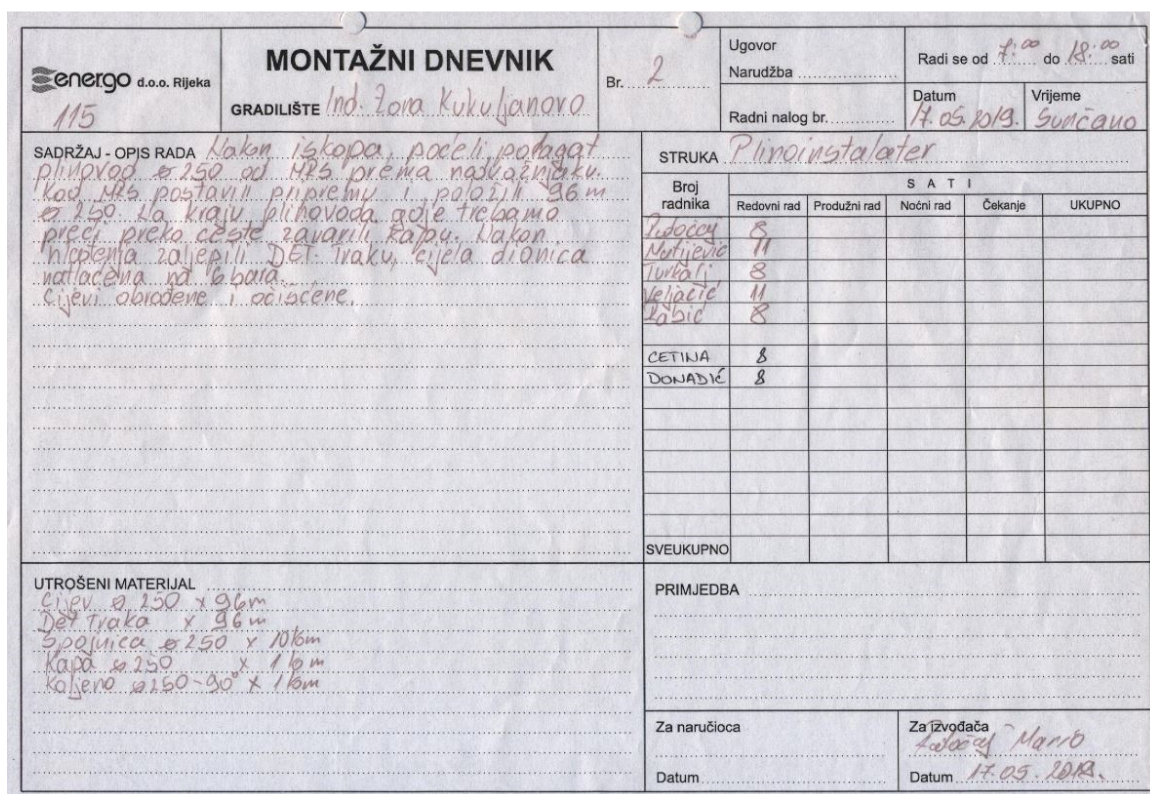 energo d.o.o. Rijeka
115
MONTAŽNI DNEVNIK
GRADILIŠTE Ind. Zona Kukuljanovo
Br. 2
Ugovor
Narudžba
Radni nalog br.
Radi se od 7:00 do 18:00 sati
Datum
17.05.2019.
Vrijeme
Sunčano
SADRŽAJ - OPIS RADA Nakon iskopa, počeli polagat
plinovod ø 250 od MRS prema
Kod MRS postavili pripremu i položili 96 m
ø 250. Na kraju plinovoda gdje trebamo
preći preko ceste zavarili kapu. Nakon
zaljepili DET. traku, cijela dionica
natlačena na 6 bara.
Cijevi obrađene i očišćene.
STRUKA Plinoinstalater
Broj radnika
SATI
Redovni rad Produžni rad Noćni rad Čekanje UKUPNO
Potočaj 8
Matijević 11
8
Veljačić 11
Babić 8
CETINA 8
DONADIĆ 8
SVEUKUPNO
UTROŠENI MATERIJAL
Cijev ø 250 x 96m
Det traka x 96m
Spojnica ø 250 x 10 kom
Kapa ø 250 x 1 kom
Koljeno ø 250-90° x 1 kom
PRIMJEDBA
Za naručioca
Datum
Za izvođača
Potočaj Mario
Datum 17.05.2019.